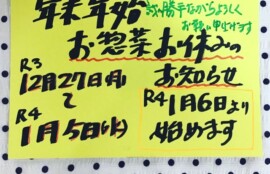 年末年始
勝手ながらよろしく
お願い申し上げます
お惣菜お休みの
お知らせ
R3
12月27日(月)
〜
R4
1月5日(水)
R4 1月6日より
始めます